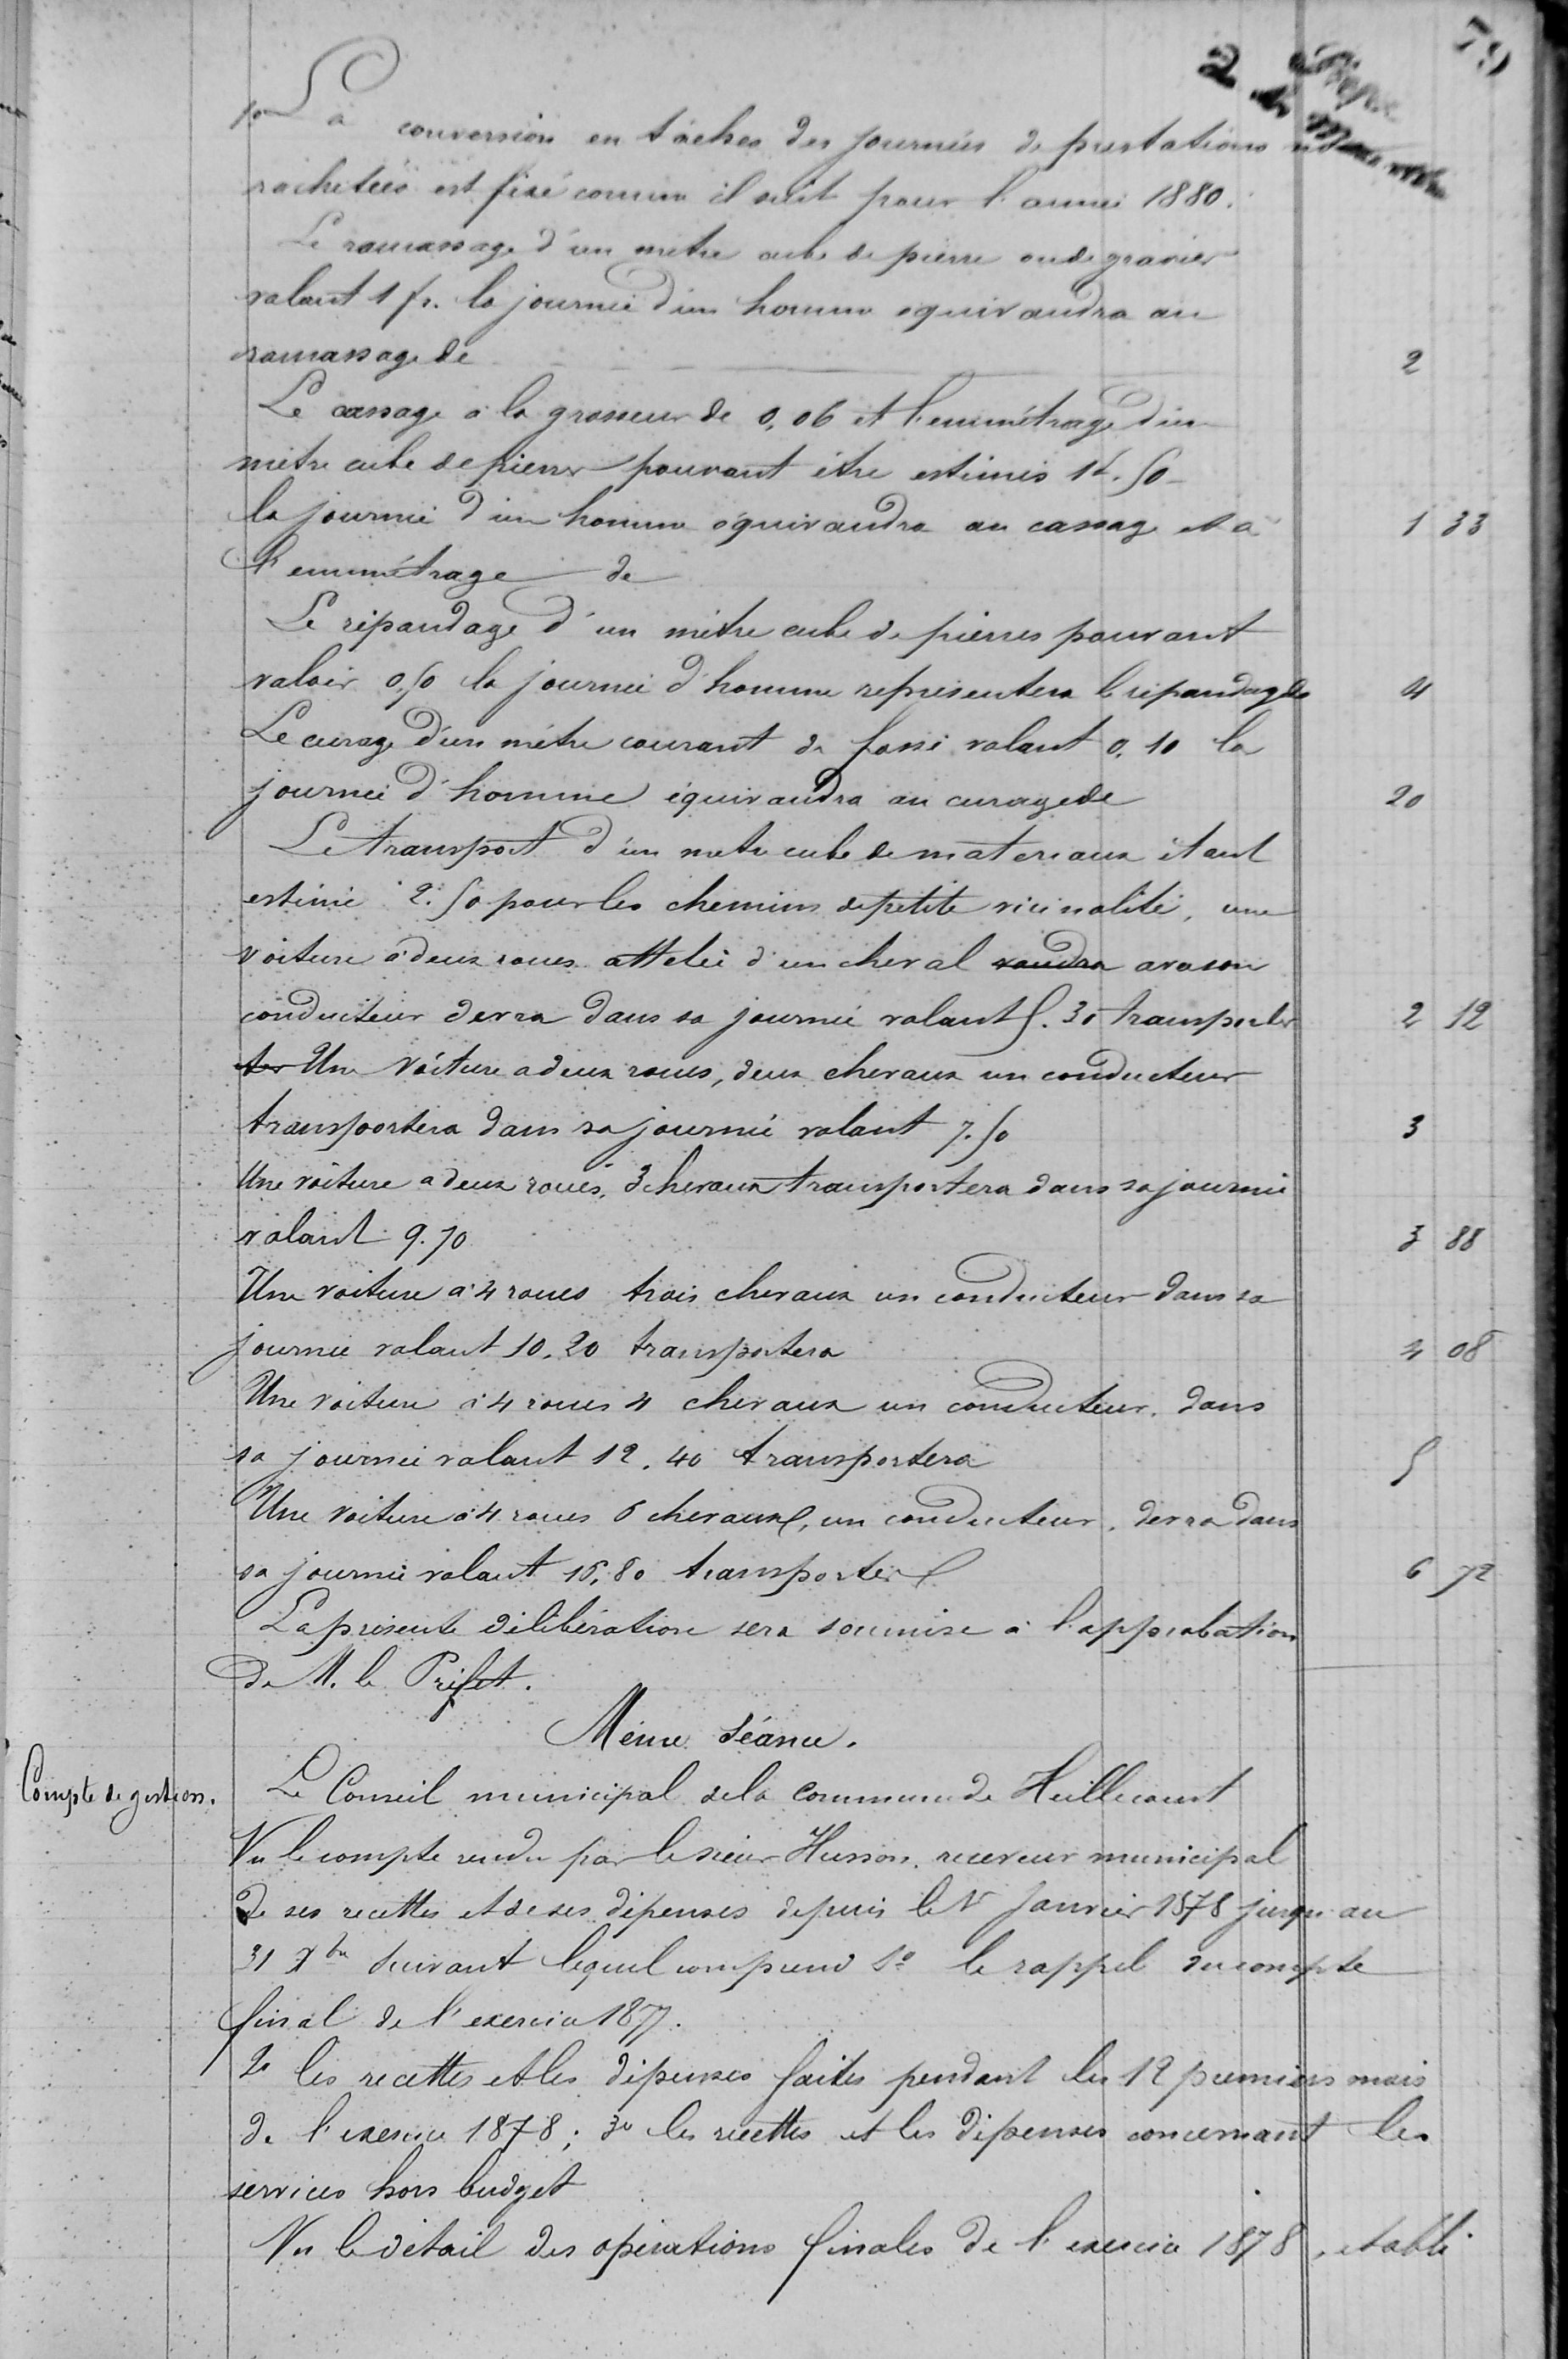 79
2
1° La conversion en tâches des journées de prestations
rachetées est fixé comme il suit pour l'année 1880.
Le ramassage d'un mètre cube de pierre ou de gravier
valant 1 fr. la journée d'un homme équivaudra au
ramassage de 2
Le cassage à la grosseur de 0,06 et l'emmétrage d'un
mètre cube de pierres pouvant être estimés 1f.50
la journée d'un homme équivaudra au cassage et à 1 33
l'emmétrage de
Le répandage d'un mètre cube de pierres pouvant
valoir 0.50 la journée d'homme représentera le répandage de 4
Le curage d'un mètre courant de fossé valant 0.10 la
journée d'homme équivaudra au curage de 20
Le transport d'un mètre cube de materiaux étant
estimé 2.50 pour les chemins de petite vicinalité, une
voiture à deux roues attelée d'un cheval vaudra avec son
conducteur devra dans sa journée valant 5.30 transporter 2 12
ter Une Voiture a deux roues, deux chevaux un conducteur
transportera dans sa journée valant 7.50 3
Une voiture a deux roues, 3 chevaux transportera dans sa journée
valant 9.70 3 88
Une voiture à 4 roues trois chevaux un conducteur dans sa
journée valant 10.20 transportera 4 08
Une voiture à 4 roues 4 chevaux un conducteur. dans
sa journée valant 12.40 transportera 5
Une voiture à 4 roues 6 chevaux, un conducteur, devra dans
sa journée valant 16,80 transporter 6 72
La présente délibération sera soumise à l'approbation
de M. le Préfet.
Même Séance.
Compte de gestion. Le Conseil municipal de la commune de Heillecourt
Vu le compte rendu par le sieur Husson, receveur municipal
de ses recettes et de ses dépenses depuis le 1er Janvier 1878 jusqu'au
31 Xbre suivant lequel comprend 1° le rappel du compte
final de l'exercice 1877.
2° les recettes et les dépenses faites pendant les 12 premiers mois
de l'exercice 1878; 3° les recettes et les dépenses concernant les
services hors budget
Vu le détail des opérations finales de l'exercice 1878, établi